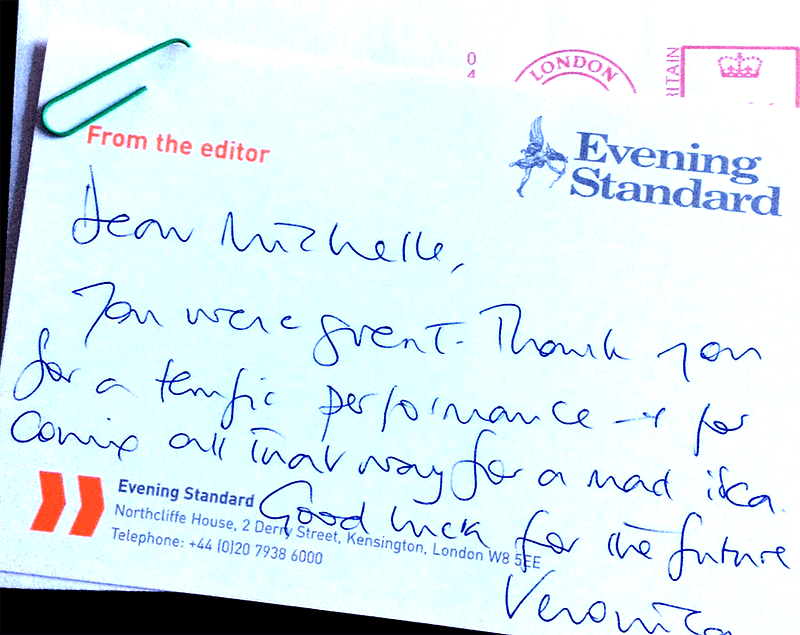 0
4
LONDON
ITAIN
From the editor
Evening
Standard
Dear Michelle,
You were great. Thank you
for a terrific performance — & for
coming all that way for a mad idea.
Evening Standard
Good luck for the future
Northcliffe House, 2 Derry Street, Kensington, London W8 5EE
Telephone: +44 (0)20 7938 6000
Veronica